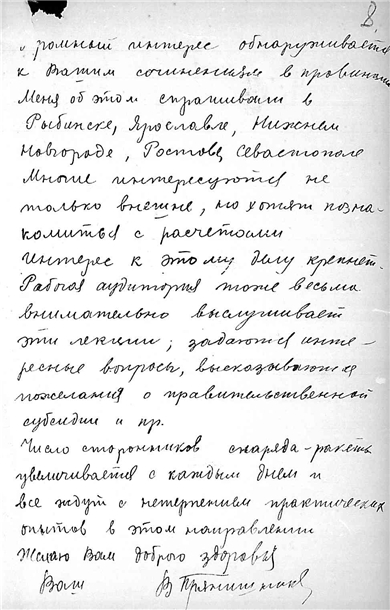 8.
громный интерес обнаруживается
к Вашим сочинениям в провинции
Меня об этом спрашивали в
Рыбинске, Ярославле, Нижнем
Новгороде, Ростове, Севастополе
Многие интересуются не
только внешне, но хотят позна-
комиться с расчетами
Интерес к этому делу крепнет.
Рабочая аудитория тоже весьма
внимательно выслушивает
эти лекции; задаются инте-
ресные вопросы, высказываются
пожелания о правительственной
субсидии и пр.
Число сторонников снаряда-ракеты
увеличивается с каждым днем и
все ждут с нетерпением практических
опытов в этом направлении
Желаю Вам доброго здоровья
Ваш В Прянишников